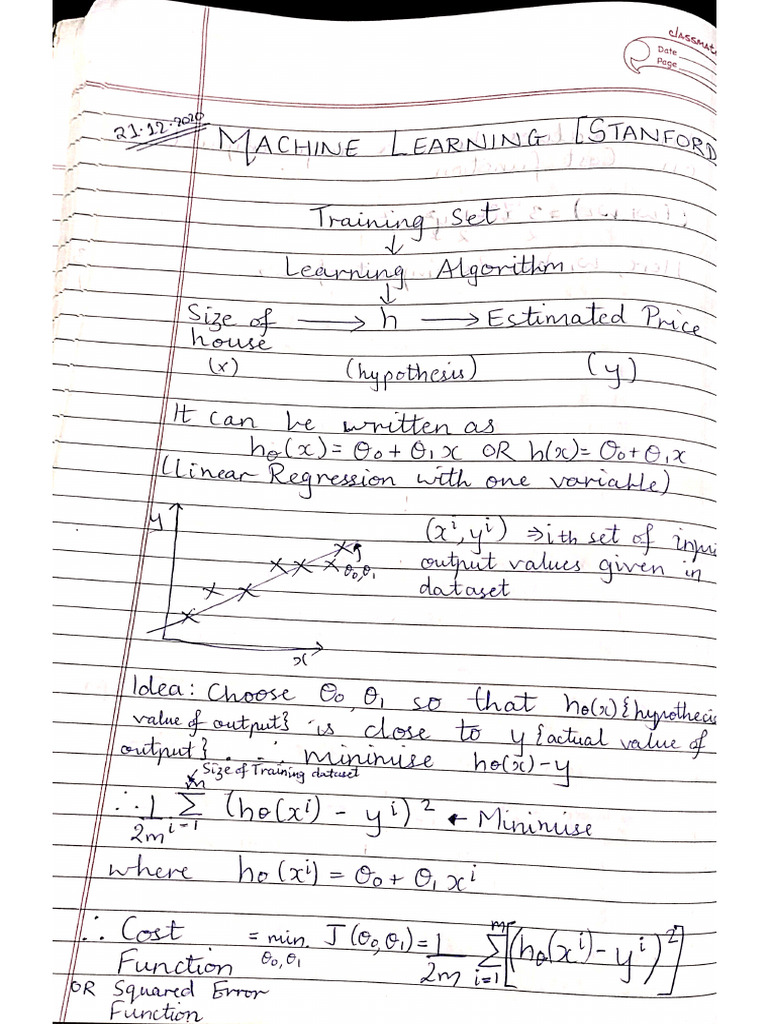 classmat
Date
Page
21.12.2020
MACHINE LEARNING [STANFORD
Training Set
↓
Learning Algorithm
↓
Size of house → h → Estimated Price
(x) (hypothesis) (y)
It can be written as
hθ(x) = θ0 + θ1x OR h(x) = θ0 + θ1x
(Linear Regression with one variable)
y
θ0,θ1
x
(xⁱ, yⁱ) ⇒ ith set of inpu
output values given in
dataset
Idea: Choose θ0, θ1 so that hθ(x) {hypothesis
value of output} is close to y {actual value of
output}. ∴ minimise hθ(x) - y
Size of Training dataset
∴ 1/2m m∑i=1 (hθ(xⁱ) - yⁱ)² ← Minimise
where hθ(xⁱ) = θ0 + θ1xⁱ
∴ Cost Function = min θ0,θ1 J(θ0,θ1) = 1/2m m∑i=1 [(hθ(xⁱ) - yⁱ)²]
OR Squared Error
Function